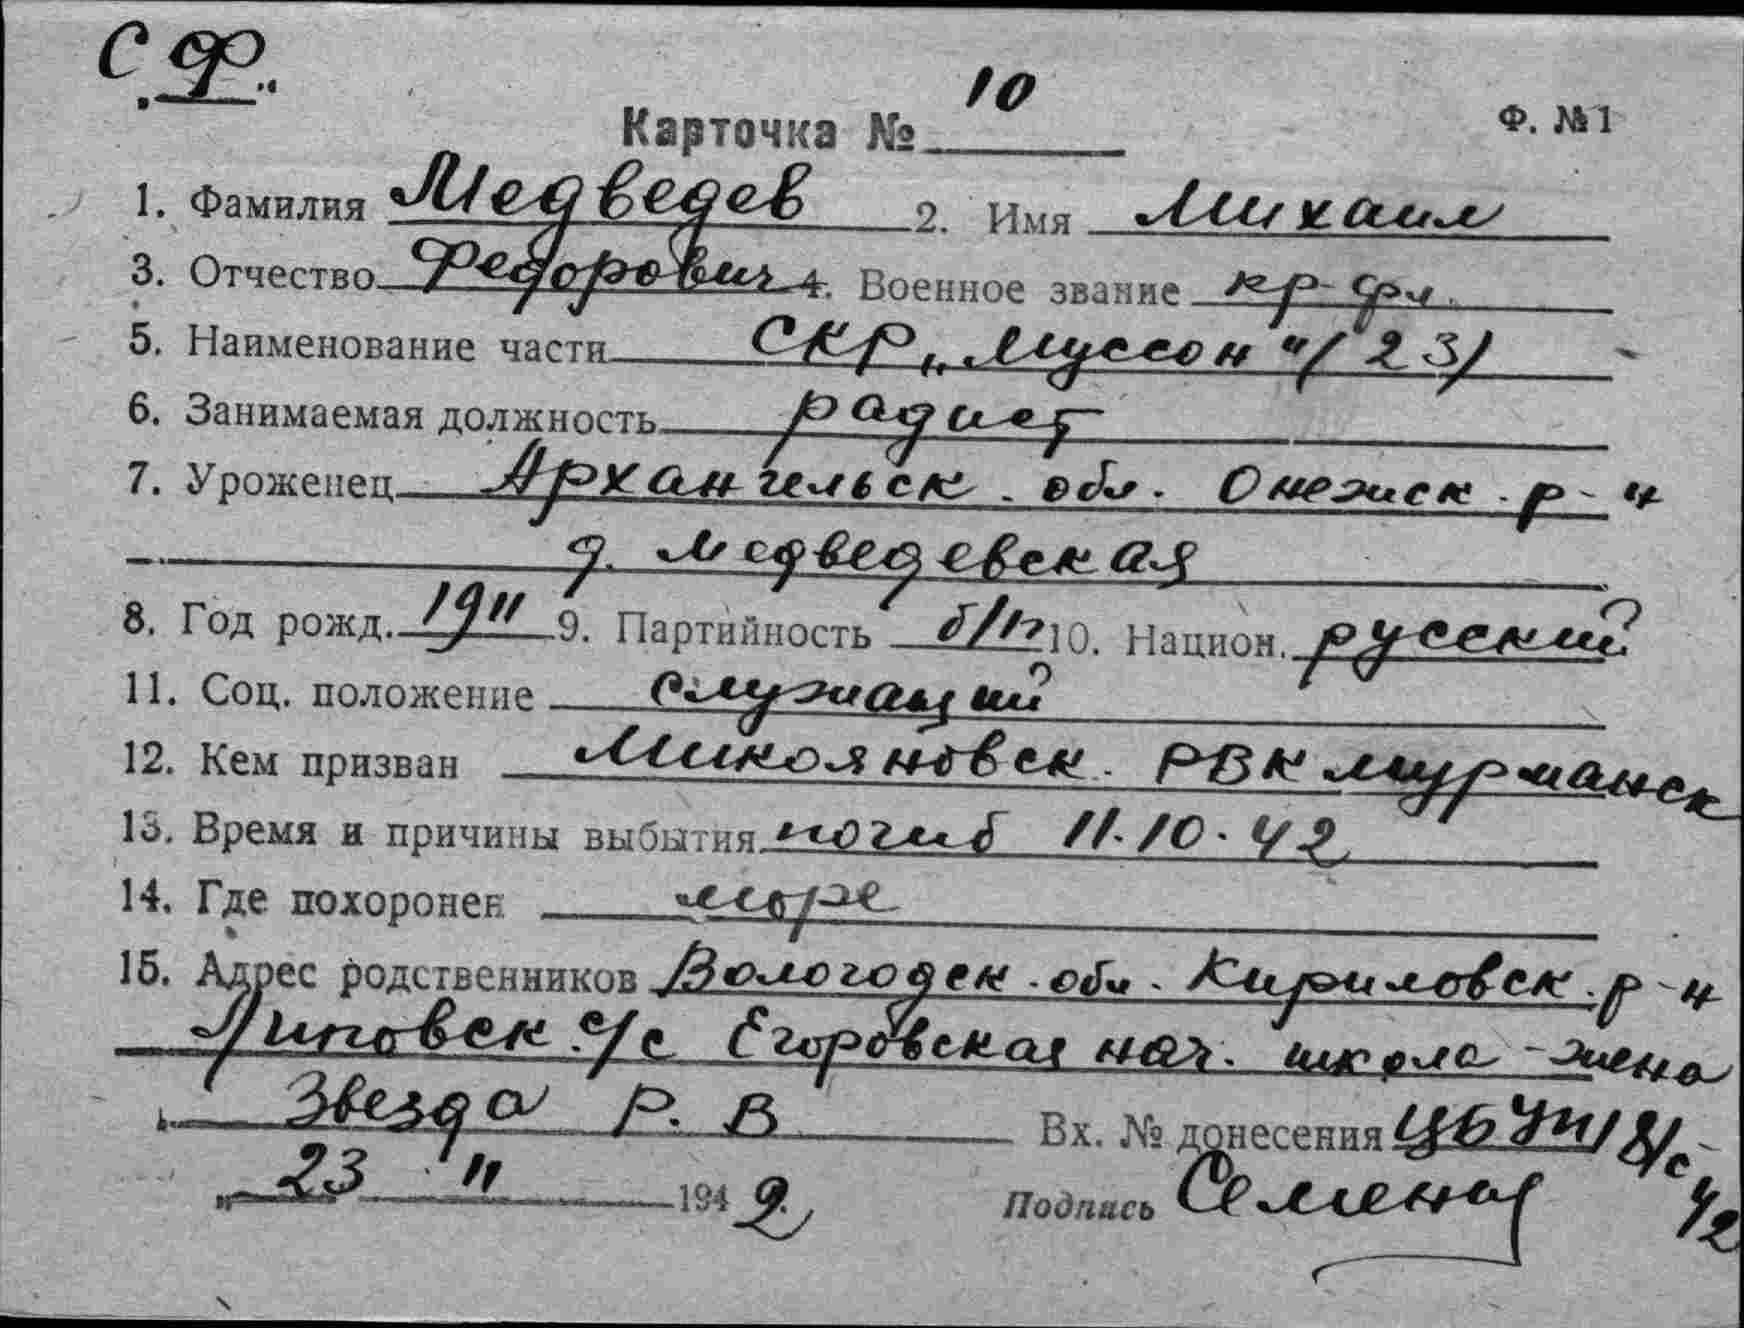 С Ф.
Карточка № 10 Ф. №1
1. Фамилия Медведев 2. Имя Михаил
3. Отчество Федорович 4. Военное звание кр-фл.
5. Наименование части СКР „Муссон" /23/
6. Занимаемая должность радист
7. Уроженец Архангельск. обл. Онежск. р-н
д. Медведевская
8. Год рожд. 1911 9. Партийность б/п 10. Национ. русский
11. Соц. положение служащий
12. Кем призван Микояновск. РВК Мурманск
13. Время и причины выбытия погиб 11.10.42
14. Где похоронен море
15. Адрес родственников Вологодск. обл. Кириловск. р-н
Липовск. с/с Егоровская нач. школа - жена
Звезда Р. В Вх. № донесения 18/с
„ 23 " 11 1942 Подпись Семенов 42